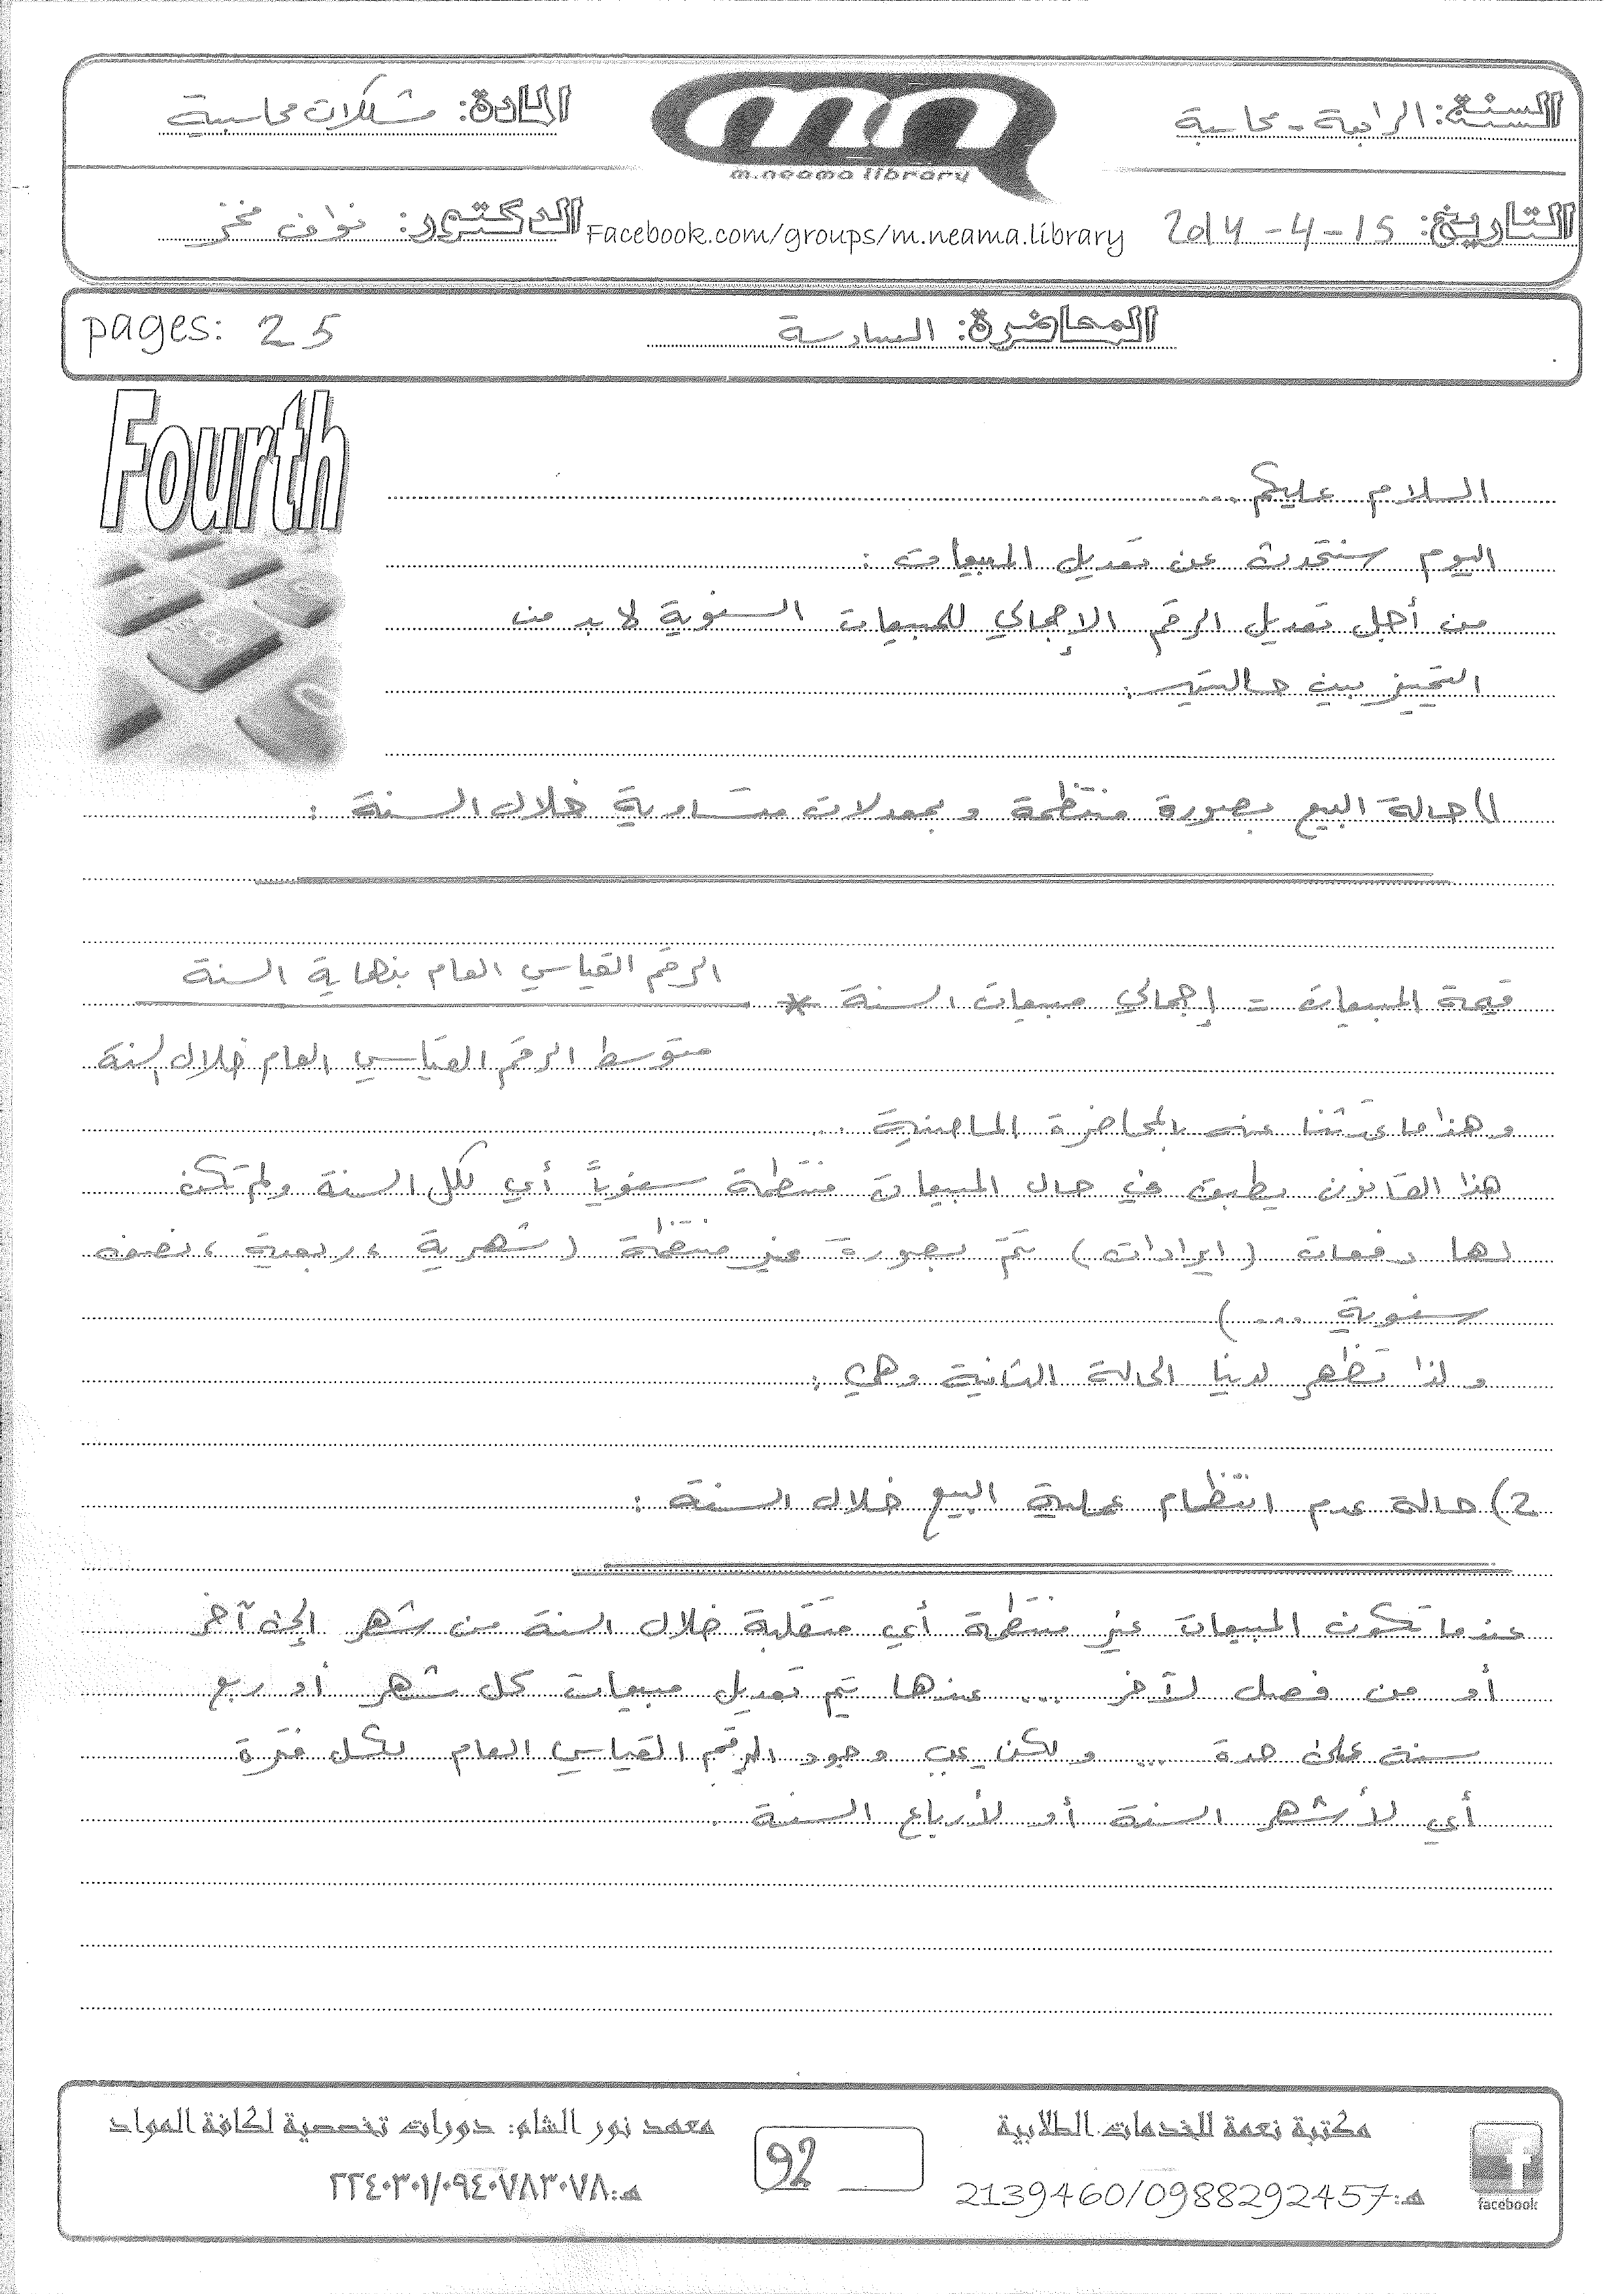 السنة: الرابعة - محاسبة
المادة: مشكلات محاسبية
m.neama library
التاريخ: 2014 - 4 - 15
Facebook.com/groups/m.neama.library
الدكتور: نواف فخر
المحاضرة: السادسة
pages: 25
Fourth
السلام عليكم ...
اليوم سنتحدث عن تعديل المبيعات :
من أجل تعديل الرقم الإجمالي للمبيعات السنوية لابد من
التمييز بين حالتين:
1) حالة البيع بصورة منتظمة وبمعدلات متساوية خلال السنة :
الرقم القياسي العام بنهاية السنة
قيمة المبيعات = إجمالي مبيعات السنة *
متوسط الرقم القياسي العام خلال السنة
وهذا ما تحدثنا عنه بالمحاضرة الماضية ...
هذا القانون يطبق في حال المبيعات منتظمة سنوياً أي لكل السنة ولم تكن
لها دفعات (ايرادات) تتم بصورة غير منتظمة (شهرية ، ربعية ، نصف
سنوية ....)
ولذا تظهر لدينا الحالة الثانية وهي :
2) حالة عدم انتظام عملية البيع خلال السنة :
عندما تكون المبيعات غير منتظمة أي متقلبة خلال السنة من شهر إلى آخر
أو من فصل لآخر ... عندها يتم تعديل مبيعات كل شهر أو ربع
سنة على حدة ... ولكن يجب وجود الرقم القياسي العام لكل فترة
أي لأشهر السنة أو لأرباع السنة .
مكتبة نعمة للخدمات الطلابية
هـ: 2139460/0988292457
facebook
92
معهد نور الشام: دورات تخصصية لكافة المواد
هـ: ٢٢٤٠٣٠١/٠٩٤٠٧٨٣٠٧٨